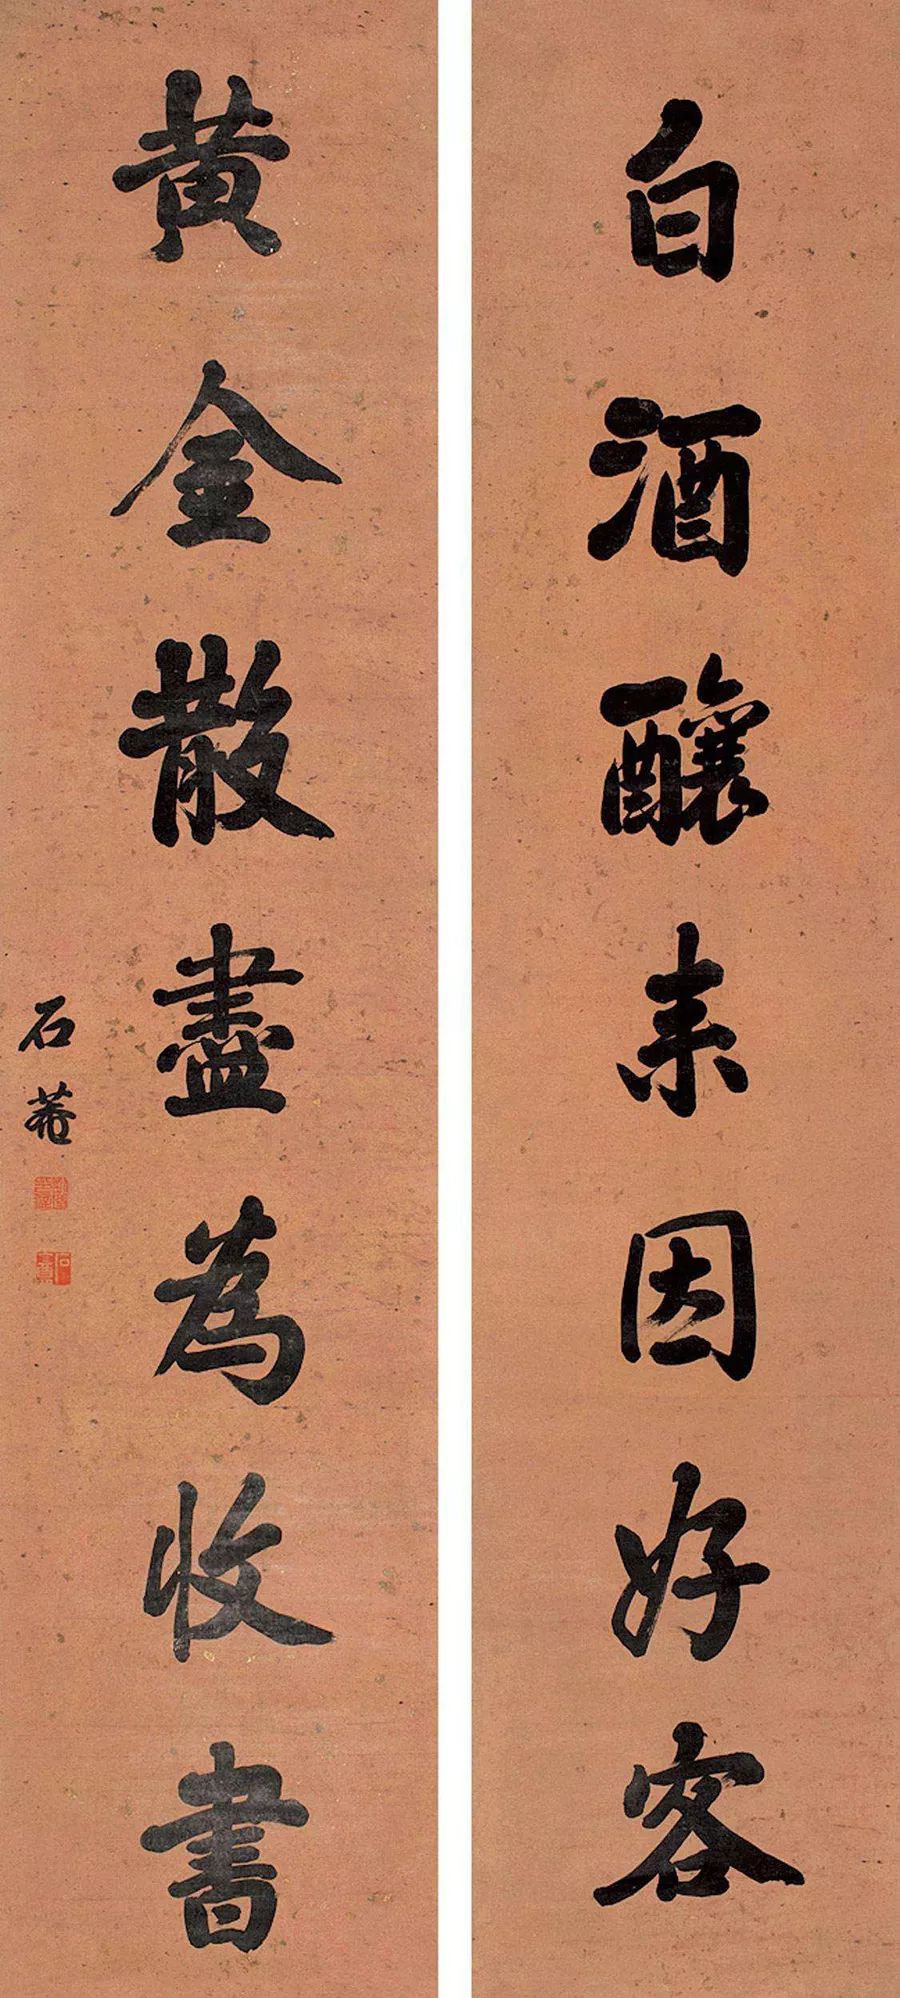 白酒釀来因好客
黄金散盡為收書
石菴